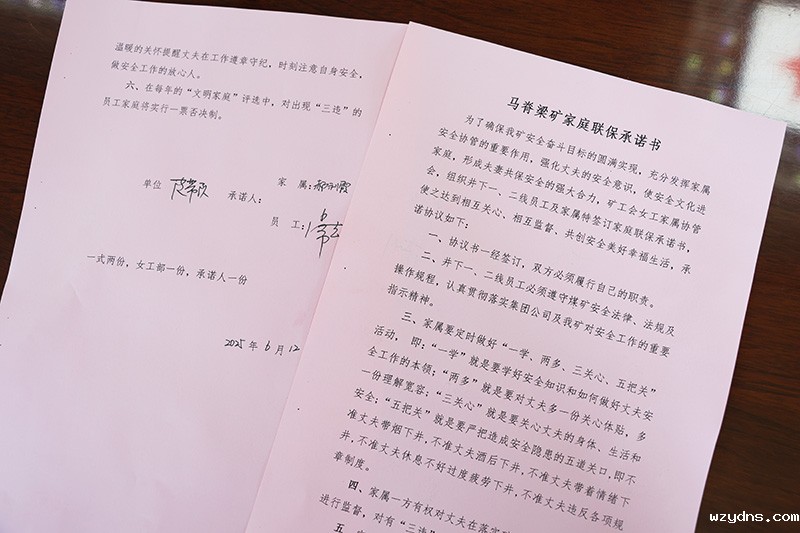 温暖的关怀提醒丈夫在工作遵章守纪，时刻注意自身安全，
做安全工作的放心人。
六、在每年的“文明家庭”评选中，对出现“三违”的
员工家庭将实行一票否决制。
单位
承诺人：
家 属：
员 工：
一式两份，女工部一份，承诺人一份
2025 年 6 月 12
马脊梁矿家庭联保承诺书
为了确保我矿安全奋斗目标的圆满实现，充分发挥家属
安全协管的重要作用，强化丈夫的安全意识，使安全文化进
家庭，形成夫妻共保安全的强大合力，矿工会女工家属协管
会，组织井下一、二线员工及家属特签订家庭联保承诺书，
使之达到相互关心、相互监督、共创安全美好幸福生活，承
诺协议如下：
一、协议书一经签订，双方必须履行自己的职责。
二、井下一、二线员工必须遵守煤矿安全法律、法规及
操作规程，认真贯彻落实集团公司及我矿对安全工作的重要
指示精神。
三、家属要定时做好“一学、两多、三关心、五把关”
活动， 即：“一学”就是要学好安全知识和如何做好丈夫安
全工作的本领；“两多”就是要对丈夫多一份关心体贴，多
一份理解宽容；“三关心”就是要关心丈夫的身体、生活和
安全；“五把关”就是要严把造成安全隐患的五道关口，即不
准丈夫带烟下井，不准丈夫酒后下井，不准丈夫带着情绪下
井，不准丈夫休息不好过度疲劳下井，不准丈夫违反各项规
章制度。
四、家属一方有权对丈夫在落实
进行监督，对有“三违”
五、
wzydns.com